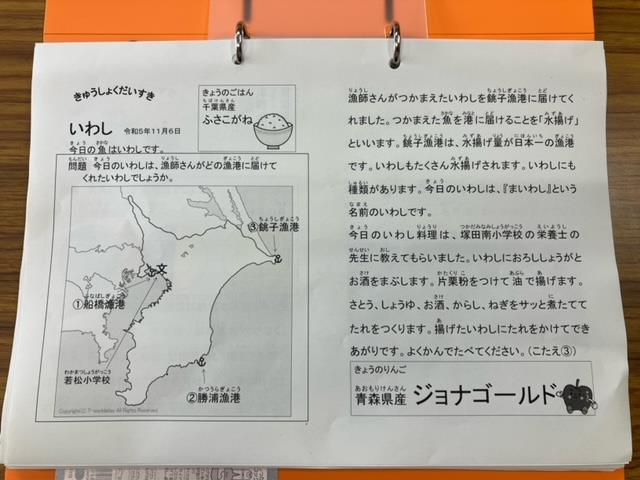 きゅうしょくだいすき
きょうのごはん
千葉県産
ふさこがね
いわし 令和5年11月6日
今日の魚はいわしです。
問題 今日のいわしは、漁師さんがどの漁港に届けて
くれたいわしでしょうか。
③銚子漁港
①船橋漁港
若松小学校
②勝浦漁港
漁師さんがつかまえたいわしを銚子漁港に届けてく
れました。つかまえた魚を港に届けることを「水揚げ」
といいます。銚子漁港は、水揚げ量が日本一の漁港
です。いわしもたくさん水揚げされます。いわしにも
種類があります。今日のいわしは、『まいわし』という
名前のいわしです。
今日のいわし料理は、塚田南小学校の栄養士の
先生に教えてもらいました。いわしにおろししょうがと
お酒をまぶします。片栗粉をつけて油で揚げます。
さとう、しょうゆ、お酒、からし、ねぎをサッと煮たてて
たれをつくります。揚げたいわしにたれをかけてでき
あがりです。よくかんでたべてください。(こたえ③)
きょうのりんご
青森県産 ジョナゴールド